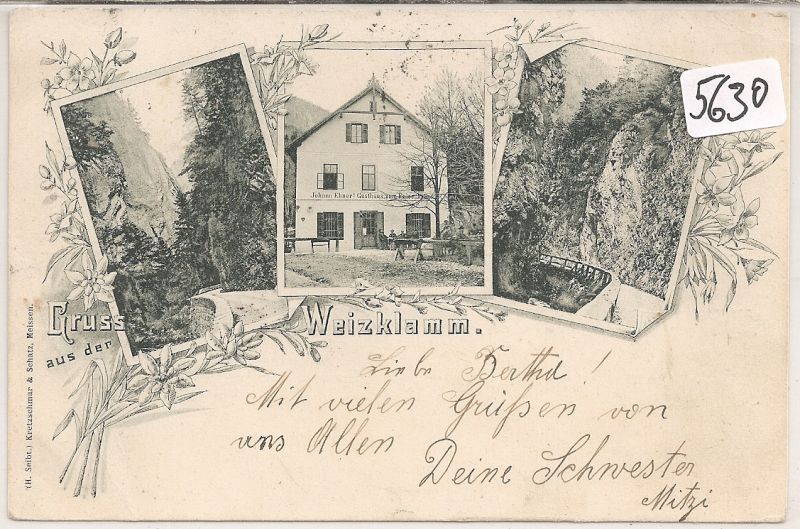 5630
Johann Ebner's Gasthaus zum
Gruss
aus der
Weizklamm.
Liebe Bertha!
Mit vielen Grüßen von
uns Allen
Deine Schwester
Mitzi
(H. Seibt.) Kretzschmar & Schatz, Meissen.